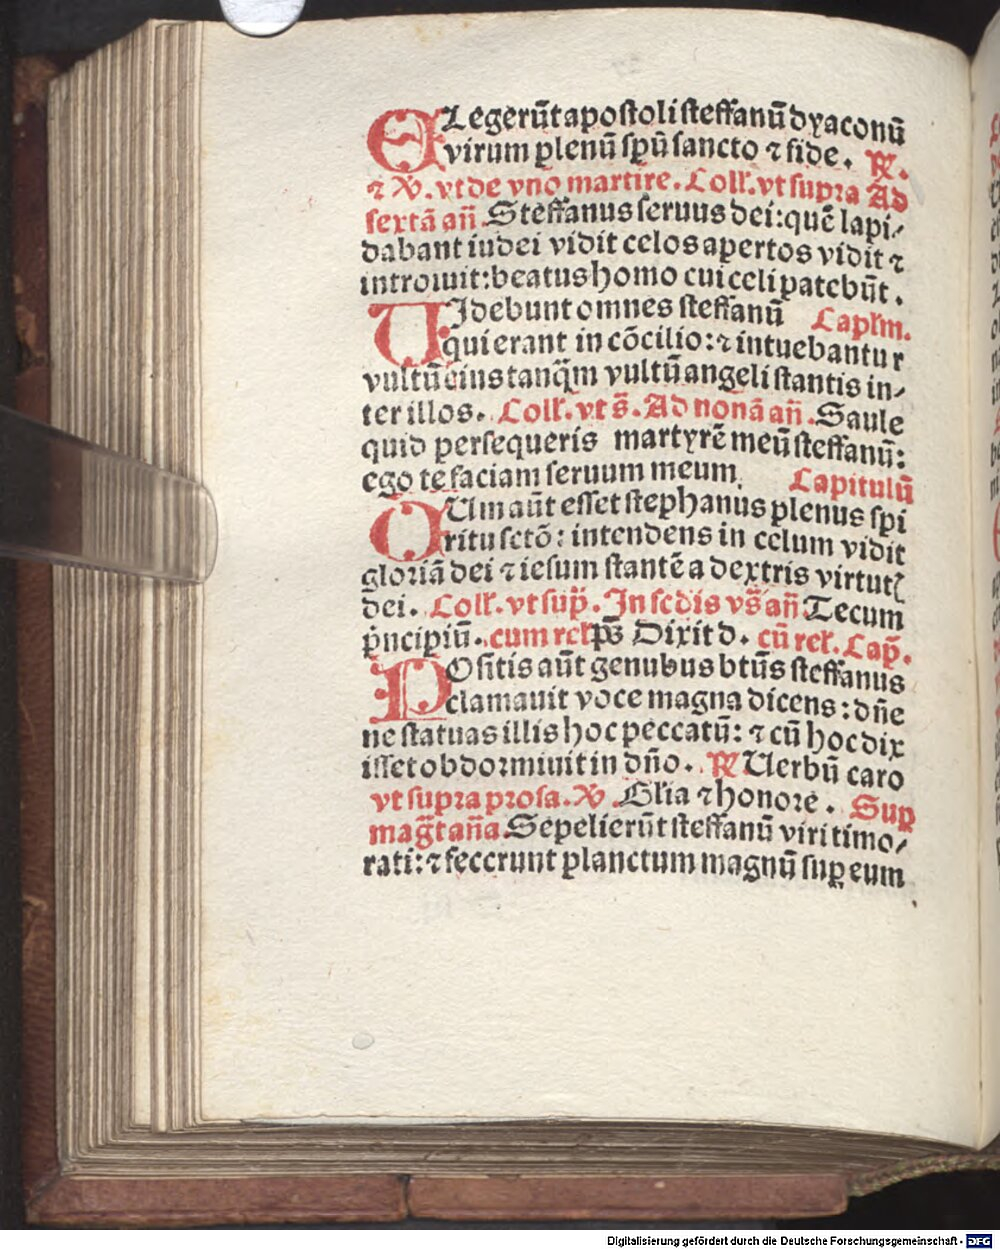 ELegerūt apostoli steffanū dyaconū
virum plenū spū sancto ⁊ fide. ℟.
⁊ ℣. vt de vno martire. Coll'. vt supra Ad
sextā añ. Steffanus seruus dei: quē lapi⸗
dabant iudei vidit celos apertos vidit ⁊
introiuit: beatus homo cui celi patebūt.
UIdebunt omnes steffanū Capl'm.
qui erant in cōcilio: ⁊ intuebantur
vultū eius tanq̄m vultū angeli stantis in⸗
ter illos. Coll'. vt s̄. Ad nonā añ. Saule
quid persequeris martyrē meū steffanū:
ego te faciam seruum meum. Capitulū
CUm aūt esset stephanus plenus spi
ritu sctō: intendens in celum vidit
gloriā dei ⁊ iesum stantē a dextris virtutꝭ
dei. Coll'. vt sup̄. In scdis vs̄ añ Tecum
p̄ncipiū. cum rel' ps̄ Dixit d. cū rel'. Cap̄.
POsitis aūt genubus btūs steffanus
clamauit voce magna dicens: dñe
ne statuas illis hoc peccatū: ⁊ cū hoc dix
isset obdormiuit in dño. ℟ Uerbū caro
vt supra prosa. ℣. Glia ⁊ honore. Sup
mag̅t aña. Sepelierūt steffanū viri timo⸗
rati: ⁊ feccrunt planctum magnū suꝑ eum
Digitalisierung gefördert durch die Deutsche Forschungsgemeinschaft - DFG